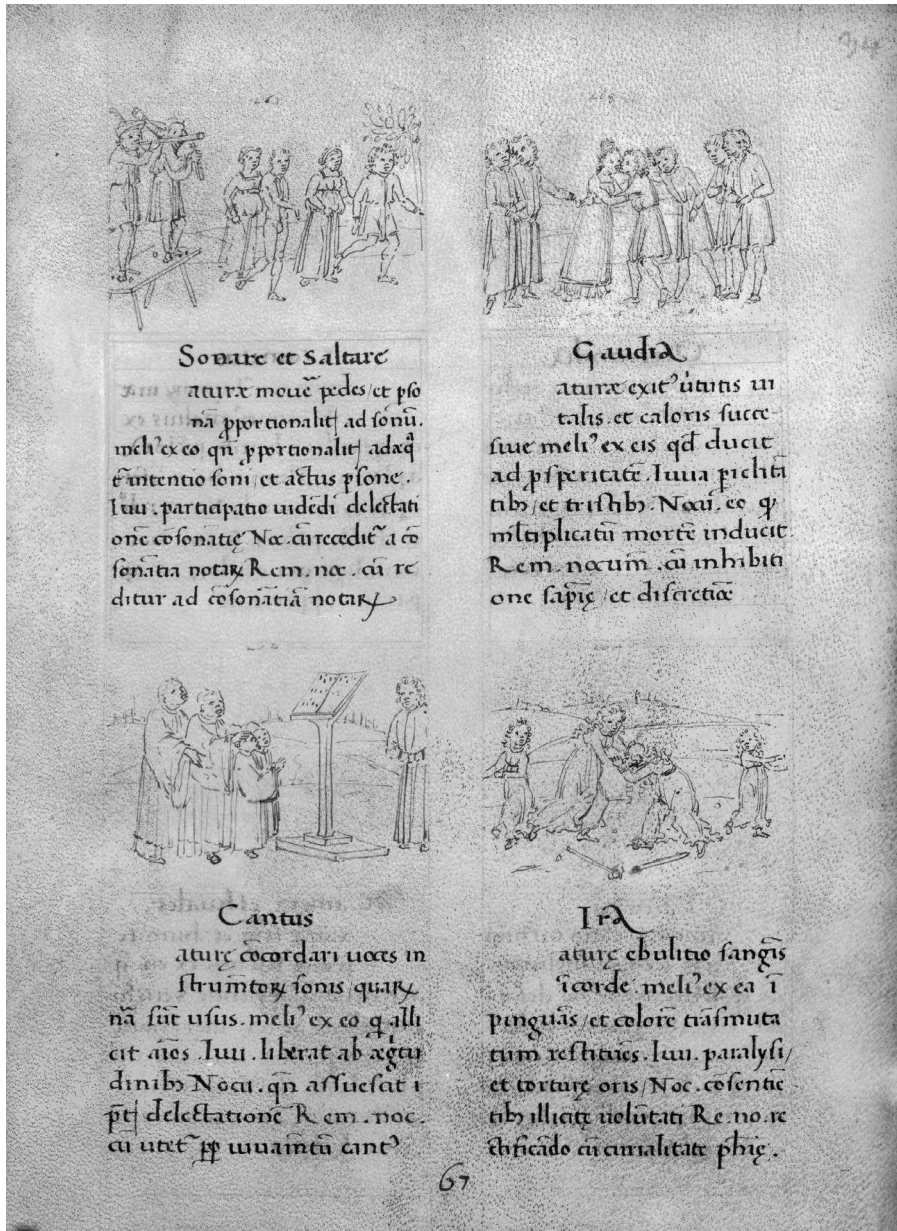 Sonare et Saltare
aturæ mouẽ pedes / et pso
nã p̱portionalit̃ ad sonũ.
meliꝰ ex eo qñ p̱portionalit̃ adæq̃
t̃ intentio soni / et actus psone.
Iuu. participatio uidẽdi delectati
onẽ cõsonatię Noc. cũ recedit᷑ a cõ
sonãtia notaꝝ Rem. noc. cũ re
ditur ad cõsonãtiã notaꝝ
Gaudia
aturæ exitꝰ ũtutis ui
talis. et caloris succe
siue meliꝰ ex eis qđ ducit
ad psperitatẽ. Iuua piclitã
tibꝫ / et tristibꝫ. Nocũ. eo ꝙ
ml̃tiplicatũ mortẽ inducit
Rem. nocum̃. cũ inhibiti
one sapĩę / et discretiõe
Cantus
aturę cõcordari uoces in
strum̃toꝝ sonis / quaꝝ
nã sũt usus. meliꝰ ex eo ꝙ alli
cit aĩos. Iuu. liberat ab ægr̃tu
dinibꝫ Nocu. qñ assuescat i
delectatione Rem. noc.
cũ utet᷑ pp̱ iuuam̃tũ cantꝰ
Ira
aturę ebulitio sangĩs
ĩ corde. meliꝰ ex ea ĩ
pinguãs / et colorẽ trãsmuta
tum restituẽs. Iuu. paralysi /
et torturę oris / Noc. cõsentiẽ
tibꝫ illicitę uolũtati Re. no. re
ctificãdo cũ curialitate ph̃ię.
67